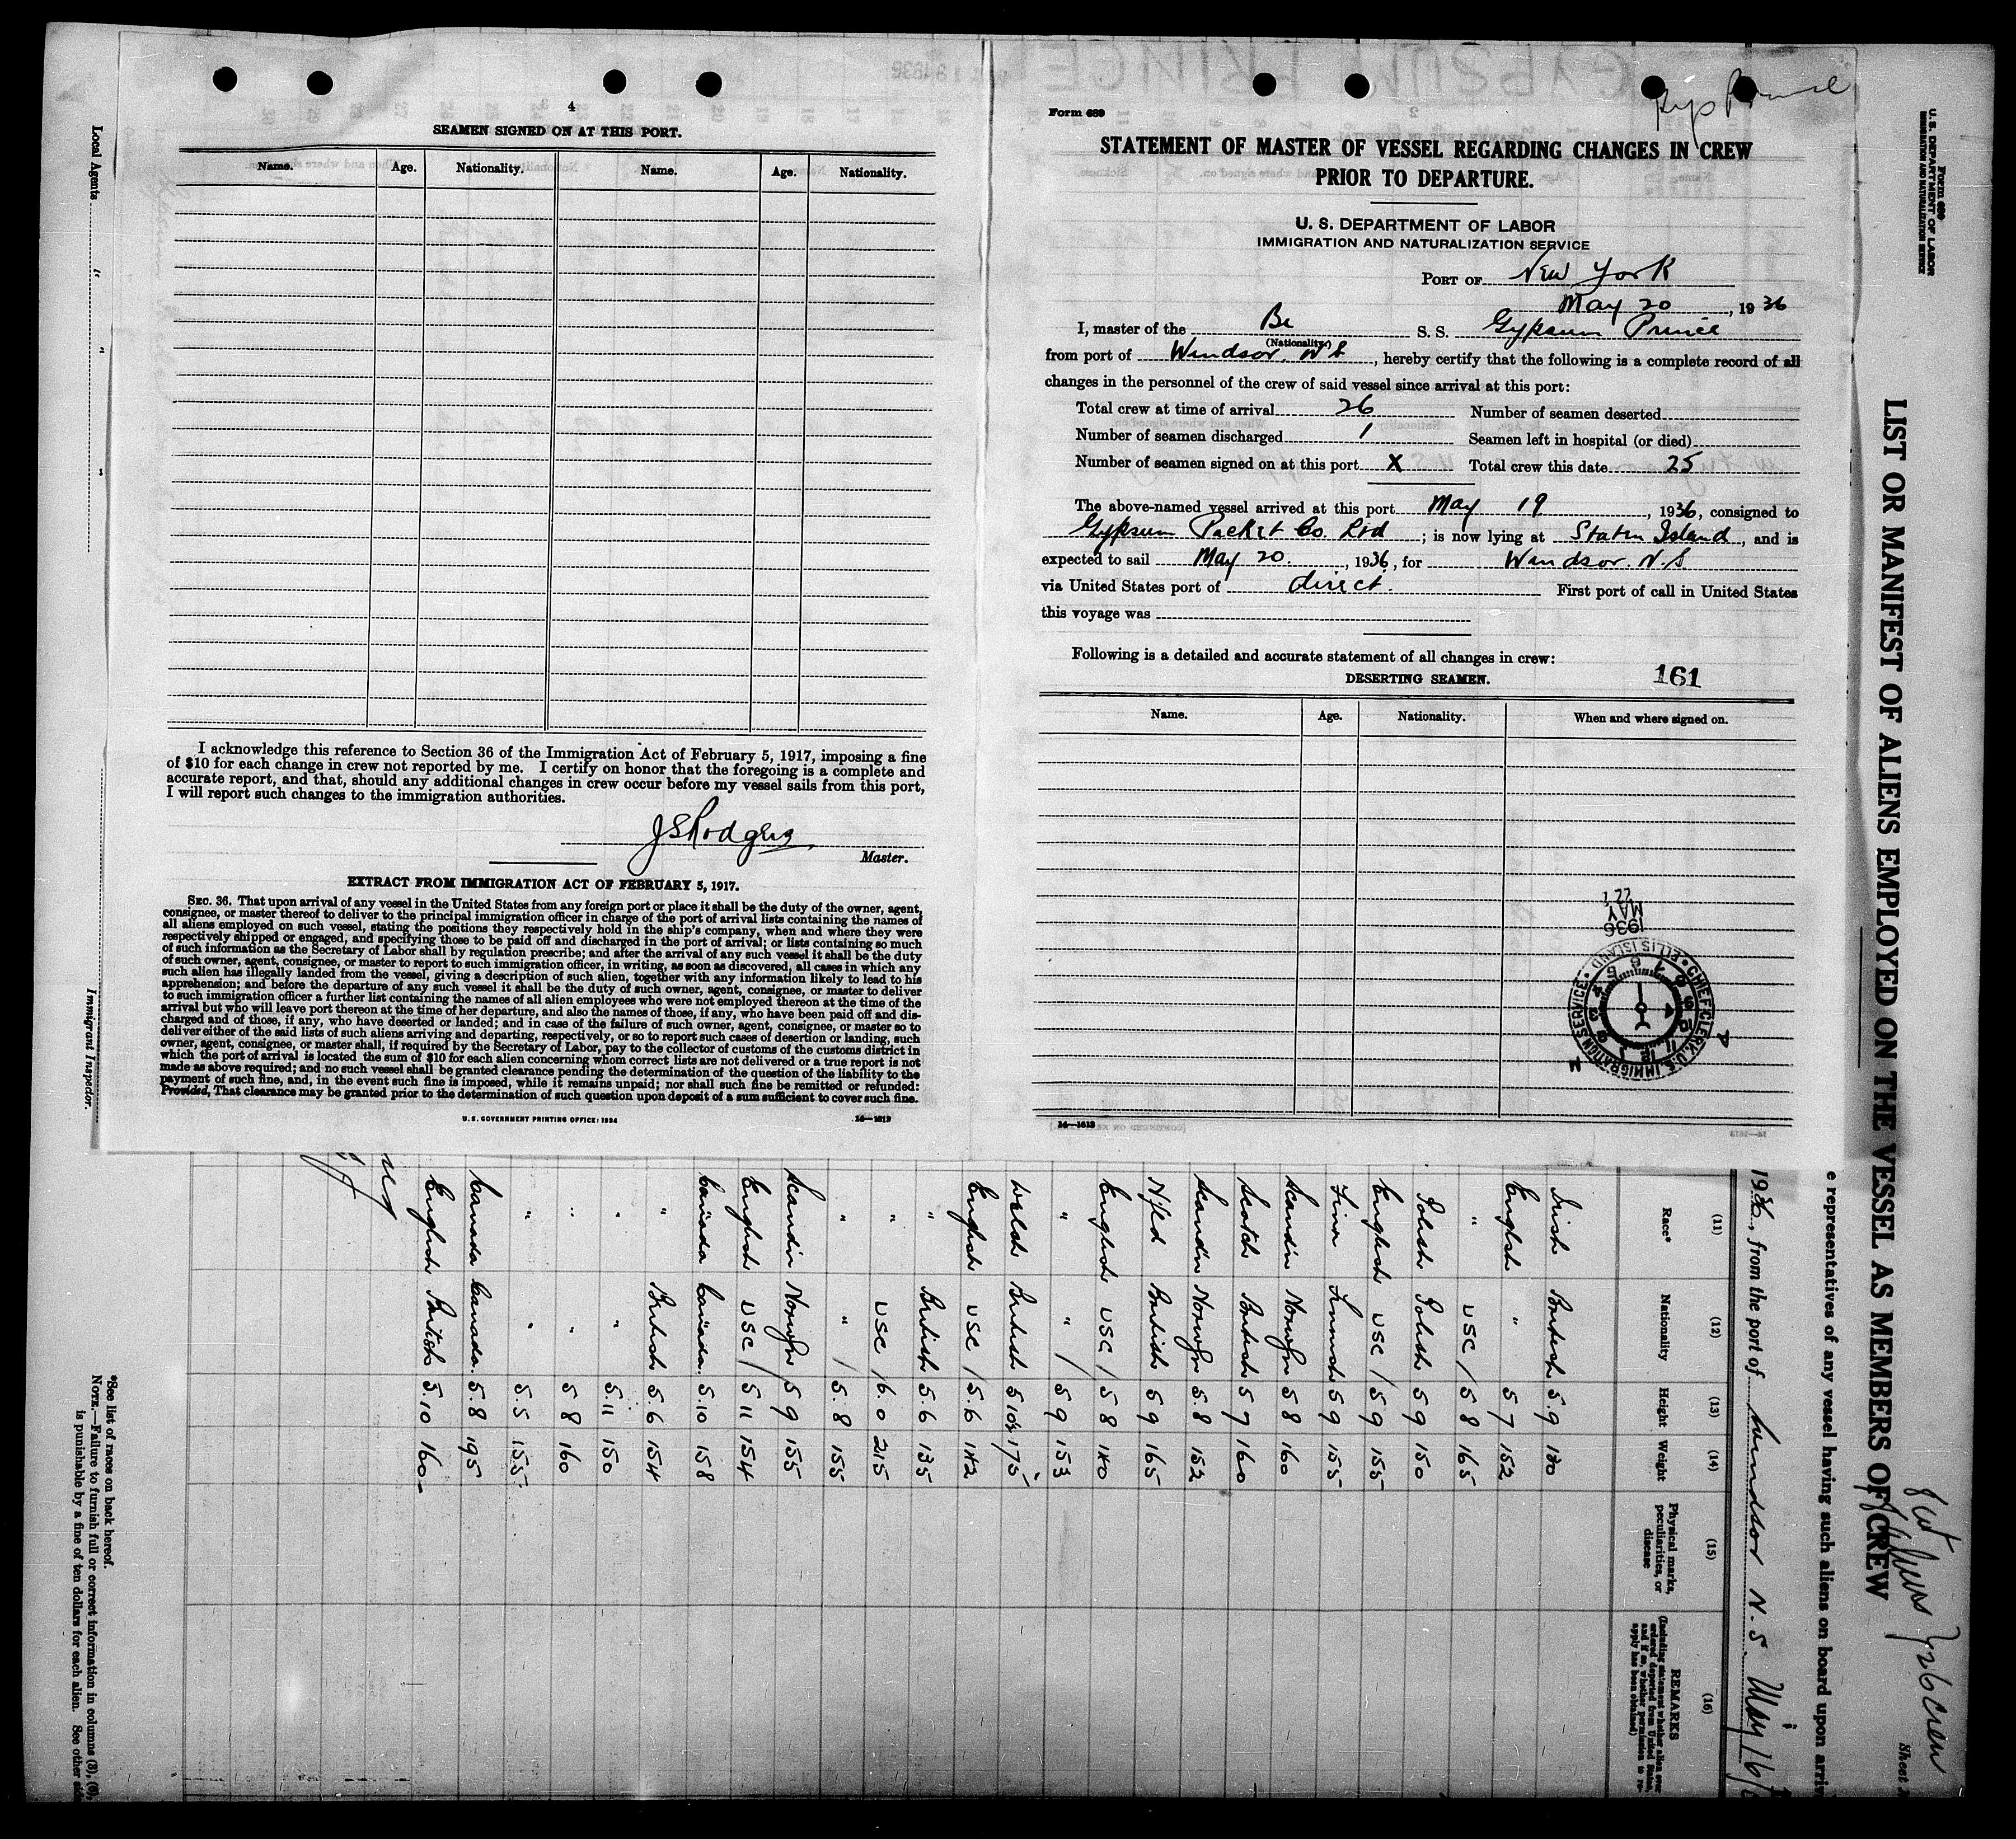 4
SEAMEN SIGNED ON AT THIS PORT.
Name. Age. Nationality. Name. Age. Nationality.
I acknowledge this reference to Section 36 of the Immigration Act of February 5, 1917, imposing a fine
of $10 for each change in crew not reported by me. I certify on honor that the foregoing is a complete and
accurate report, and that, should any additional changes in crew occur before my vessel sails from this port,
I will report such changes to the immigration authorities.
JSRodgers
Master.
EXTRACT FROM IMMIGRATION ACT OF FEBRUARY 5, 1917.
SEC. 36. That upon arrival of any vessel in the United States from any foreign port or place it shall be the duty of the owner, agent,
consignee, or master thereof to deliver to the principal immigration officer in charge of the port of arrival lists containing the names of
all aliens employed on such vessel, stating the positions they respectively hold in the ship's company, when and where they were
respectively shipped or engaged, and specifying those to be paid off and discharged in the port of arrival; or lists containing so much
of such information as the Secretary of Labor shall by regulation prescribe; and after the arrival of any such vessel it shall be the duty
of such owner, agent, consignee, or master to report to such immigration officer, in writing, as soon as discovered, all cases in which any
such alien has illegally landed from the vessel, giving a description of such alien, together with any information likely to lead to his
apprehension; and before the departure of any such vessel it shall be the duty of such owner, agent, consignee, or master to deliver
to such immigration officer a further list containing the names of all alien employees who were not employed thereon at the time of the
arrival but who will leave port thereon at the time of her departure, and also the names of those, if any, who have been paid off and dis-
charged and of those, if any, who have deserted or landed; and in case of the failure of such owner, agent, consignee, or master so to
deliver either of the said lists of such aliens arriving and departing, respectively, or so to report such cases of desertion or landing, such
owner, agent, consignee, or master shall, if required by the Secretary of Labor, pay to the collector of customs of the customs district in
which the port of arrival is located the sum of $10 for each alien concerning whom correct lists are not delivered or a true report is not
made as above required; and no such vessel shall be granted clearance pending the determination of the question of the liability to the
payment of such fine, and, in the event such fine is imposed, while it remains unpaid; nor shall such fine be remitted or refunded:
Provided, That clearance may be granted prior to the determination of such question upon deposit of a sum sufficient to cover such fine.
U. S. GOVERNMENT PRINTING OFFICE: 1934 14—1613
Form 689
Gyp Prince
STATEMENT OF MASTER OF VESSEL REGARDING CHANGES IN CREW
PRIOR TO DEPARTURE.
U. S. DEPARTMENT OF LABOR
IMMIGRATION AND NATURALIZATION SERVICE
PORT OF New York
May 20, 1936
I, master of the Br S. S. Gypsum Prince
(Nationality)
from port of Windsor. N S, hereby certify that the following is a complete record of all
changes in the personnel of the crew of said vessel since arrival at this port:
Total crew at time of arrival 26 Number of seamen deserted
Number of seamen discharged 1 Seamen left in hospital (or died)
Number of seamen signed on at this port X Total crew this date 25
The above-named vessel arrived at this port May 19, 1936, consigned to
Gypsum Packet Co. Ltd; is now lying at Staten Island, and is
expected to sail May 20., 1936, for Windsor. N.S
via United States port of direct. First port of call in United States
this voyage was
Following is a detailed and accurate statement of all changes in crew:
DESERTING SEAMEN. 161
Name. Age. Nationality. When and where signed on.
1936
MAY
22
CHIEF CLERK U.S. IMMIGRATION SERVICE · ELLIS ISLAND ·
14—1613
Local Agents
Immigrant Inspector.
Form 689
U. S. DEPARTMENT OF LABOR
IMMIGRATION AND NATURALIZATION SERVICE
LIST OR MANIFEST OF ALIENS EMPLOYED ON THE VESSEL AS MEMBERS OF CREW
26 crew
Sheet
e representatives of any vessel having such aliens on board upon arriv
1936, from the port of Windsor N. S. May 16
(11) (12) (13) (14) (15) (16)
Race* Nationality Height Weight Physical marks, peculiarities, or disease REMARKS
(Including statement whether alien ever ordered deported from United States, and if so, whether permission to re-apply has been obtained)
Irish British 5.9 130
English " 5 7 152
" USC / 5 8 165
Polish Polish 5 9 150
English USC / 5 9 155
Finn Finnish 5 9 155
Scandn Norwgn 5 8 160
Scotch British 5 7 160
Scandn Norwgn 5.8 152
Nfld British 5 9 165
English USC / 5 8 140
" " / 5 9 153
Welsh British 5 10½ 175
English USC / 5.6 142
" British 5.6 135
" USC / 6.0 215
" " / 5.8 155
Scandn Norwgn 5 9 155
English USC / 5 11 154
Canada Canada 5.10 158
" British 5.6 154
" " 5.11 150
" " 5 8 160
" " 5.5 155
Canada Canada 5.8 195
English British 5.10 160
*See list of races on back hereof.
NOTE.—Failure to furnish full or correct information in columns (3), (6),
is punishable by a fine of ten dollars for each alien. See other side